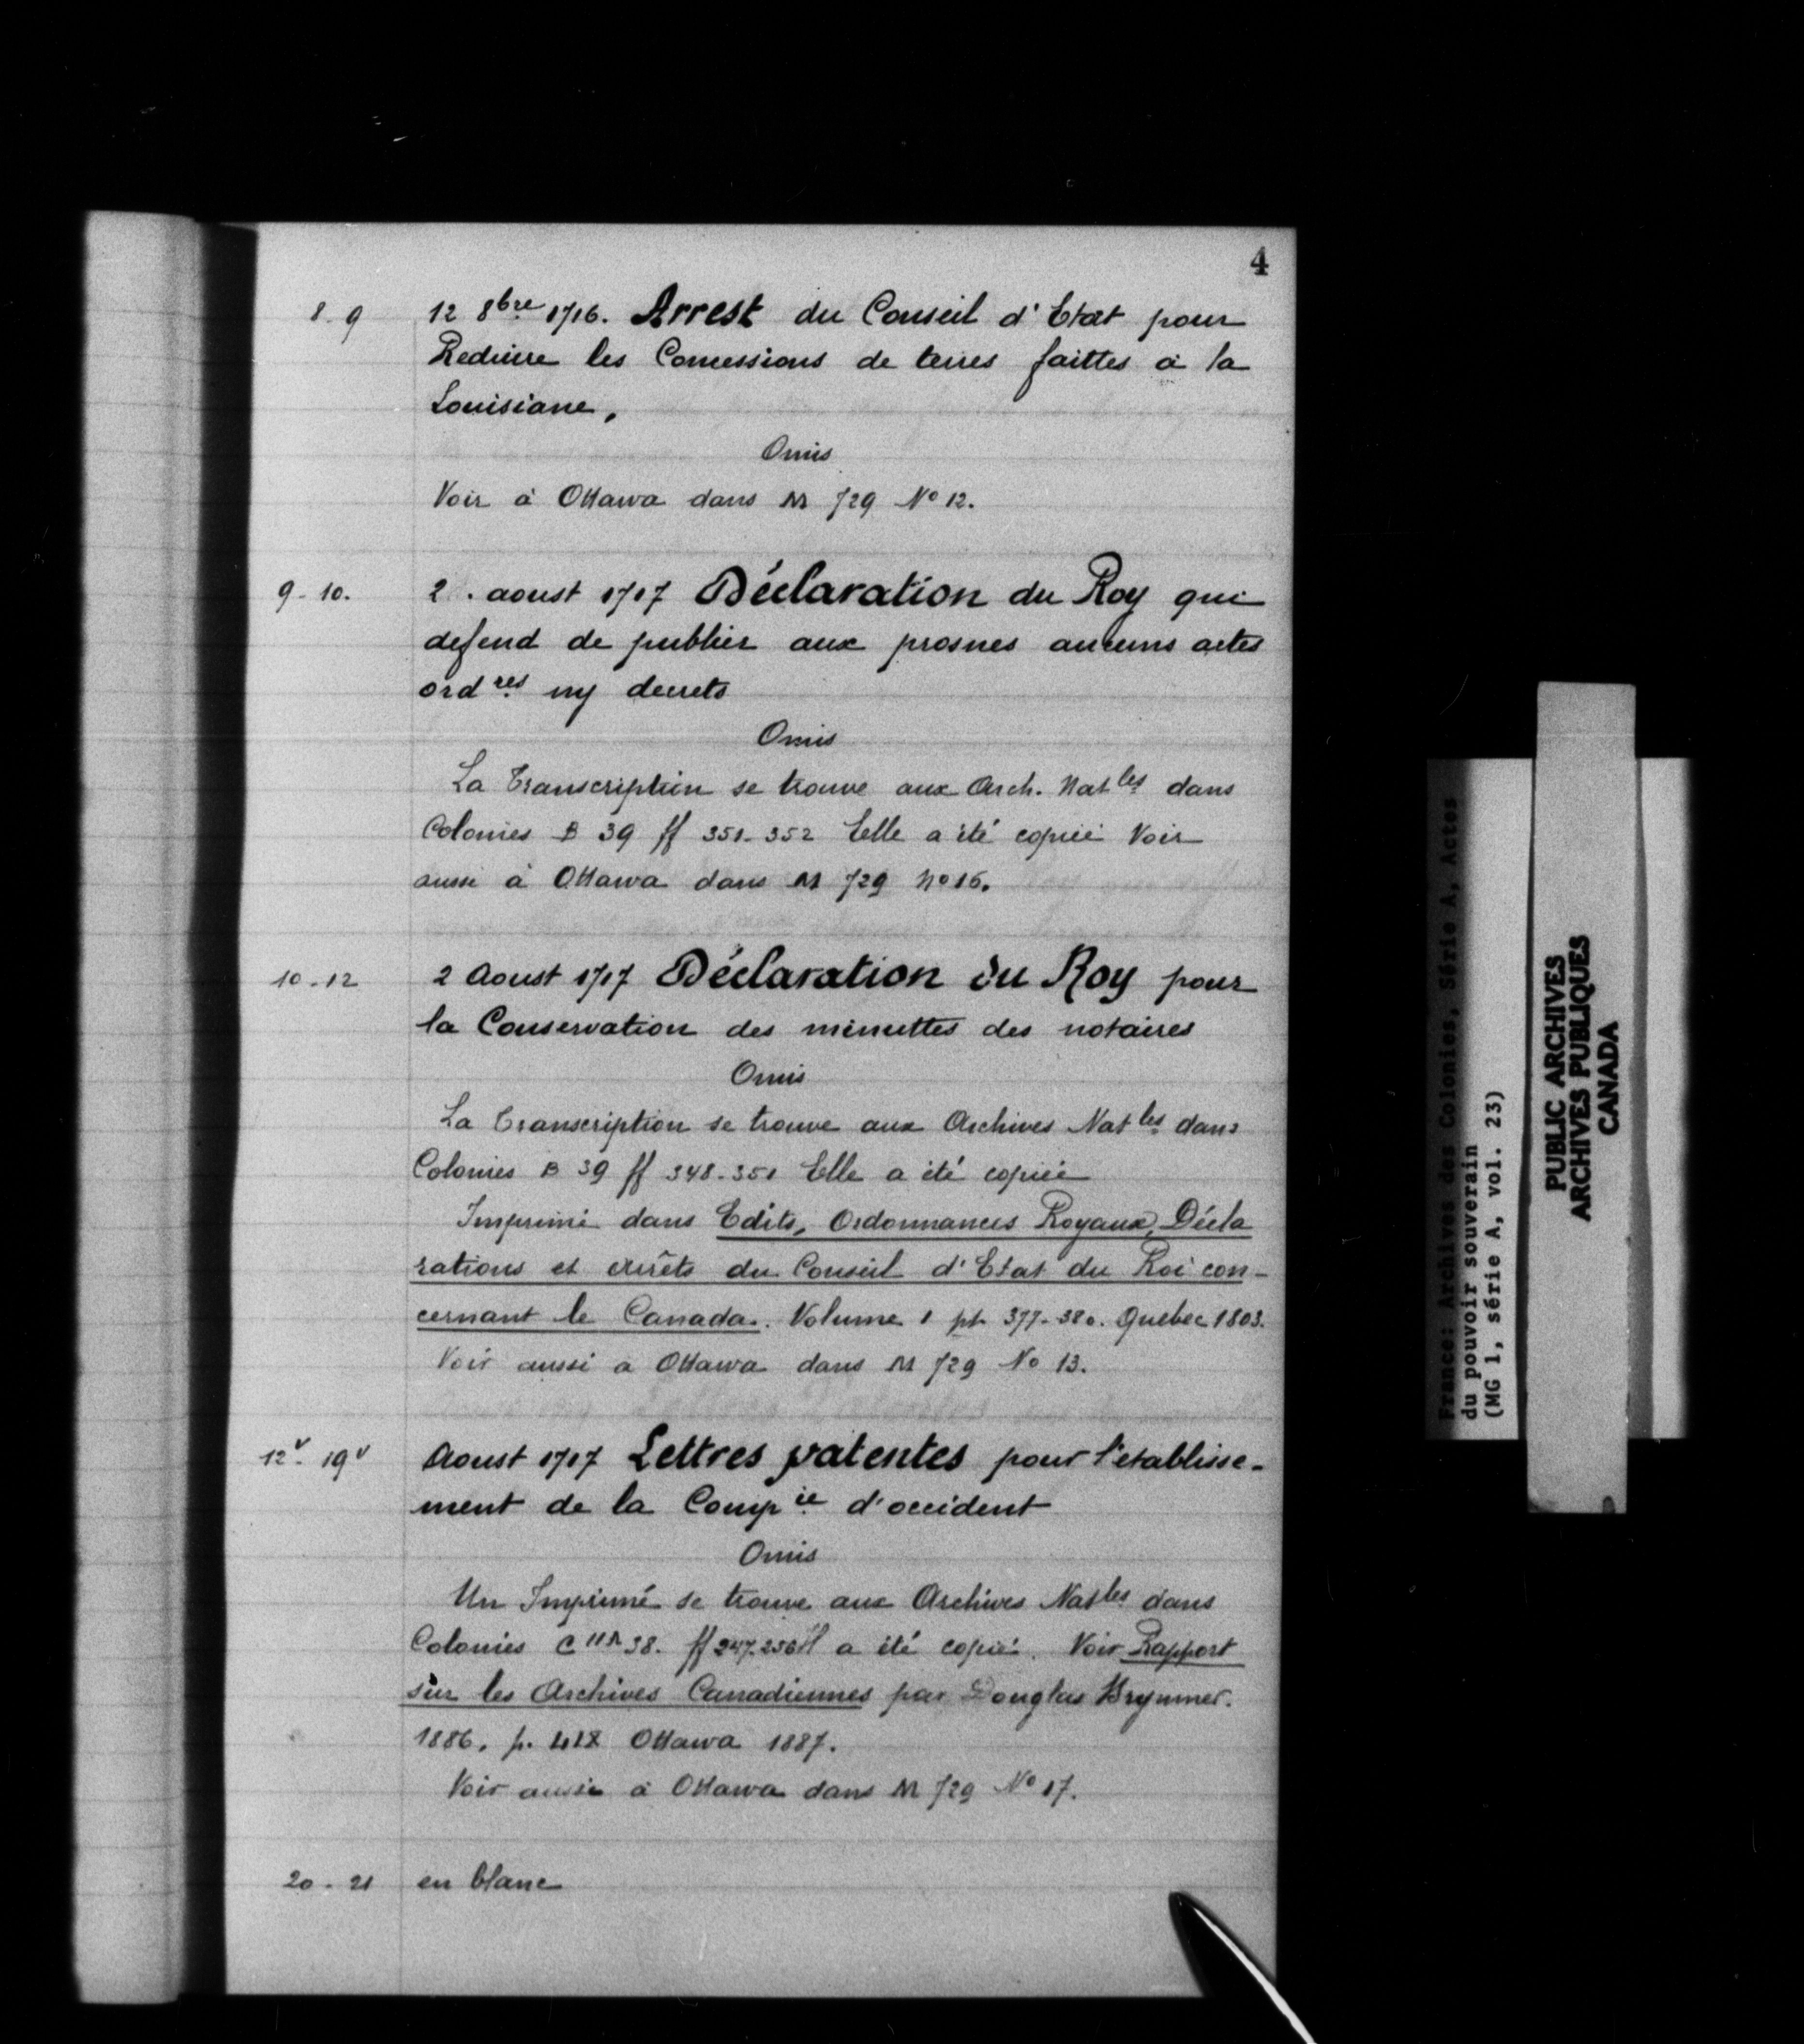 4
8-9 12 8bre 1716. Arrest du Conseil d'Etat pour
Reduire les Concessions de terres faittes à la
Louisiane,
Omis
Voir à Ottawa dans M 729 No 12.
9-10. 2. aoust 1717 Déclaration du Roy qui
defend de publier aux prosnes aucuns actes
ordres ny decrets
Omis
La Transcription se trouve aux Arch. Natles dans
Colonies B 39 ff 351-352 Elle a été copiée Voir
aussi à Ottawa dans M 729 No 16.
10-12 2 Aoust 1717 Déclaration du Roy pour
la Conservation des minuttes des notaires
Omis
La Transcription se trouve aux Archives Natles dans
Colonies B 39 ff 348-351 Elle a été copiée
Imprimé dans Edits, Ordonnances Royaux, Décla
rations et Arrêts du Conseil d'Etat du Roi con-
cernant le Canada. Volume 1 pp. 377-380. Quebec 1803.
Voir aussi à Ottawa dans M 729 No 13.
12v-19v Aoust 1717 Lettres patentes pour l'établisse-
ment de la Compie d'occident
Omis
Un Imprimé se trouve aux Archives Natles dans
Colonies C 11A 38. ff 247-256 Il a été copié. Voir Rapport
sur les Archives Canadiennes par Douglas Brymner.
1886. p. Ottawa 1887.
Voir aussi à Ottawa dans M 729 No 17.
20-21 en blanc
France: Archives des Colonies, Série A, Actes
du pouvoir souverain
(MG 1, série A, vol. 23)
PUBLIC ARCHIVES
ARCHIVES PUBLIQUES
CANADA